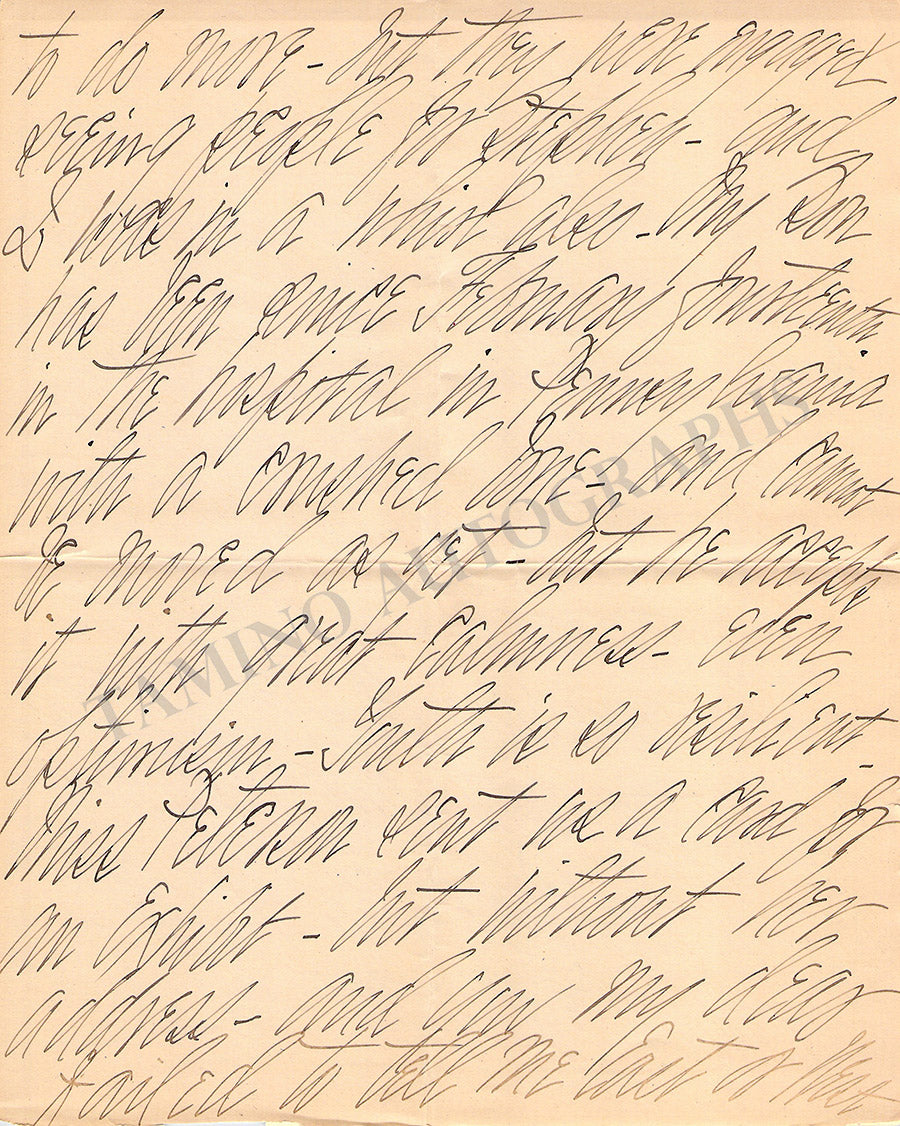 to do more - but they were engaged
seeing people for Stephen - and
I was in a whirl also - My son
has been since February fourteenth
in the hospital in Pennsylvania
with a crushed bone - and cannot
be moved as yet - but he accepts
it with great calmness - even
optimism - Youth is so resilient -
Miss Peterson sent us a card for
an Exhibt - but without her
address - and you my dear
failed to tell me East or West
TAMINO AUTOGRAPHS